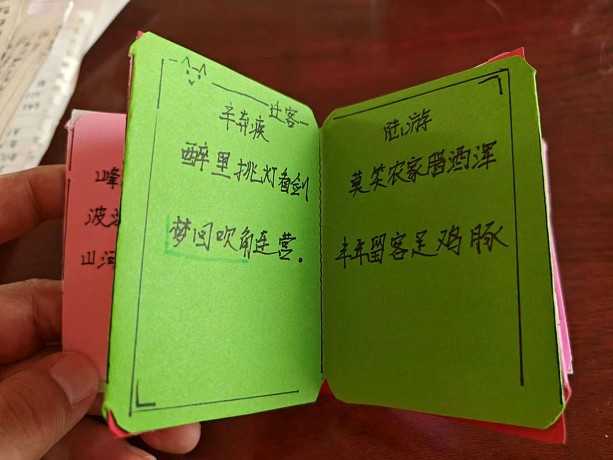 峰
波
山河
迁客
辛弃疾
醉里挑灯看剑
梦回吹角连营。
陆游
莫笑农家腊酒浑
丰年留客足鸡豚